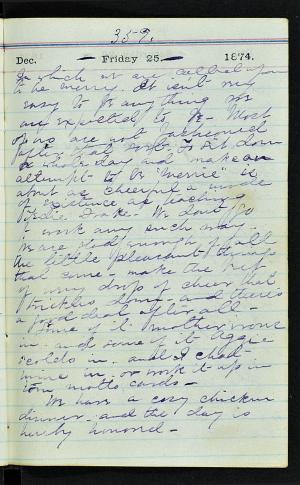 359.
Dec. Friday 25 1874.
In which we are called upon
to be merry. It isn't very
easy to be anything we
are expected to be - Most
of us are not fashioned
after that sort. To sit down
a whole day and make an
attempt to be "merrie" is
about as cheerful a mode
of existence as teaching
Drake - We don't go
to work any such way.
We are glad enough of all
the little pleasant things
that come - make the best
of every drop of cheer that
trickles down - and there is
a good deal after all -
Some of it mother works
in and some of it Aggie
scolds in, and I chat
mine in, or work it up in
motto cards -
We have a cosy chicken
dinner and the day is
hereby honored -